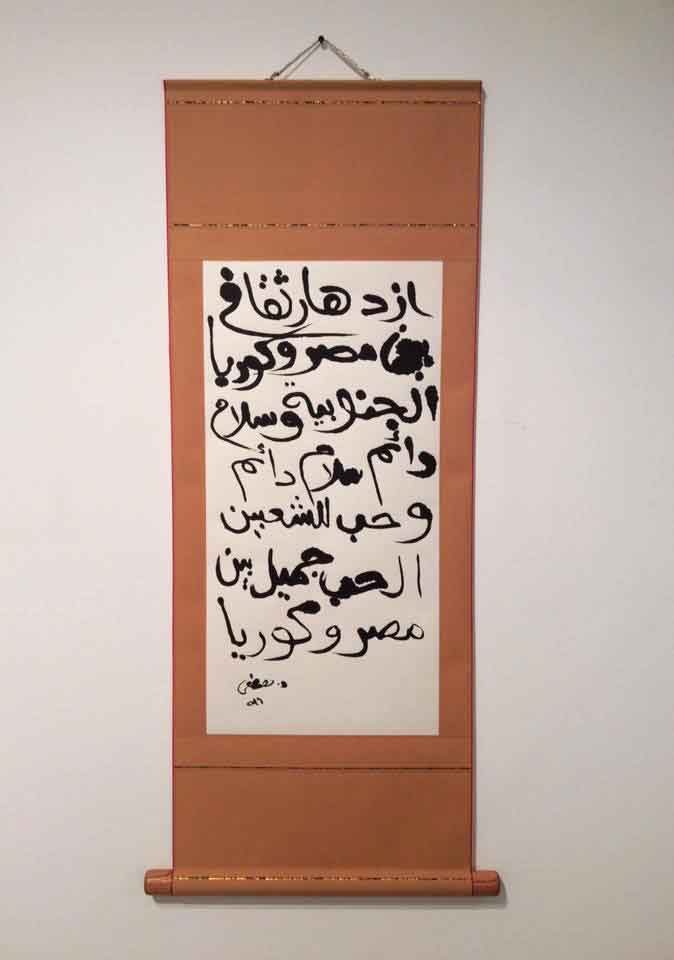 ازدهار ثقافي
بين مصر وكوريا
الجنوبية وسلام
دائم سلام دائم
وحب للشعبين
الحب جميل بين
مصر وكوريا
د. مصطفى